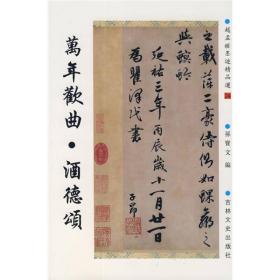 趙孟頫墨迹精品選
●孫寶文 編
●吉林文史出版社
之載萍二豪侍側如蜾蠃之
與螟蛉
延祐三年丙辰歲十一月廿一日
為瞿澤民書
子昂
萬年歡曲•酒德頌